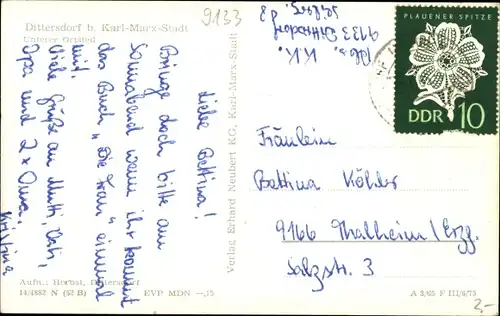 Dittersdorf b. Karl-Marx-Stadt
Unterer Ortsteil
9133
9133 Dittersdorf
PLAUENER SPITZE
DDR 10
Liebe Bettina!
Bringe doch bitte am
Sonnabend wenn ihr kommt
das Buch „Die Frau" einmal
mit.
Viele Grüße an Mutti, Vati,
Opa und 2 x Oma.
Kristina
Verlag Erhard Neubert KG, Karl-Marx-Stadt
Fräulein
Bettina Köhler
9166 Thalheim/Erzg.
Salzstr. 3
Aufn.: Herbst, Dittersdorf
14/4882 N (52 B) EVP MDN —,15
A 3/65 F III/6/75
2,-